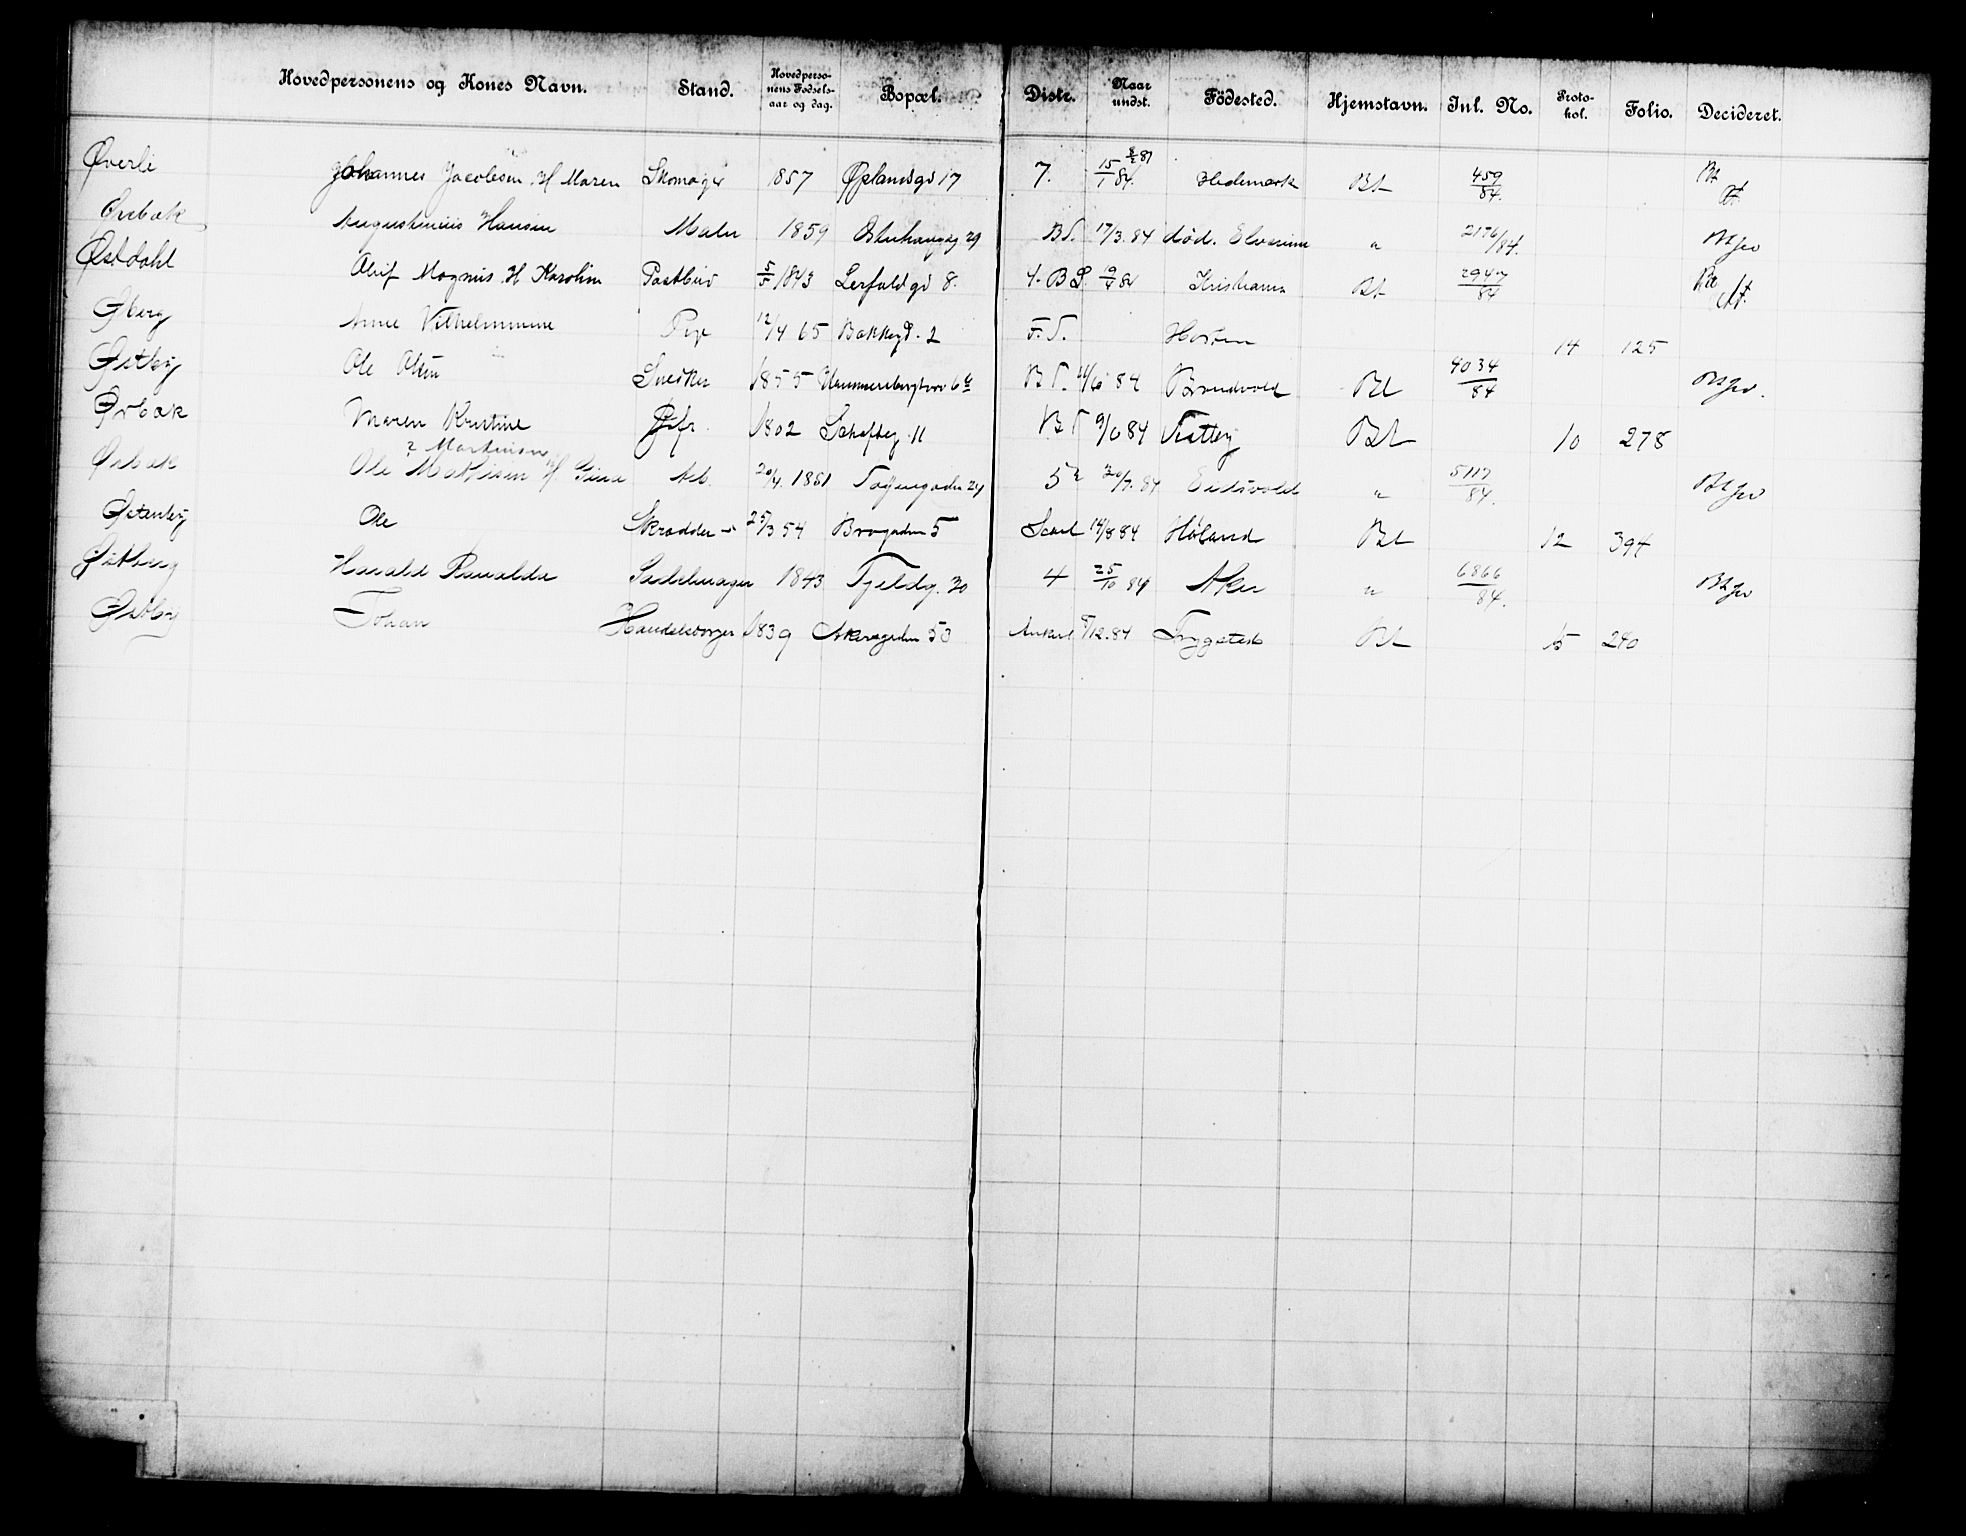 Hovedpersonens og Kones Navn. Stand. Hovedperso-nens Fødsels-aar og dag. Bopæl. Distr. Naar undst. Födested. Hjemstavn. Jnl. No. Proto-kol. Folio. Decideret.
Øverli Johannes Jacobsen H Maren Skomager 1857 Oplandsgd 17 7. 15/1 84. Hedemark Bt 459/84. Bt
Ørbæk Augustinius Hansen Maler 1859 29 B.T. 17/3.84 død. Elverum " 2176/84.
Østdahl Oluf Magnus H Karolin Postbud 5/5 1843 Lerfaldgd 8. 4. B 19/4 84 Kristiania Bt 2947/84 Bt
Øberg Anne Vilhelmmine Pige 12/4 65 Bakkegd. 2 F.T. Horten 14 125
Østby Ole Olsen Snedker 1855 6 B.T. 11/6 84 Brandvold Bt 4034/84
Ørbæk Maren Kristine 1802 11 B T 9/6 84 Bt 10 278
Ørbæk Ole Mathisen H Gina Arb. 20/4. 1851 Tøiengaden 24 5 30/7. 84 Eidsvold " 5117/84.
? Martinsen
Østenby Ole Skrædder 25/3 54 Brogaden 5 14/8 84 Høland Bt 12 394
Østberg Harald Sadelmager 1843 30 4 25/10 84 Aker " 6866/84.
Østby Johan Handelsborger 1839 Akersgaden 53 Ankerl 5/12.84 Trygstad Bt 15 240